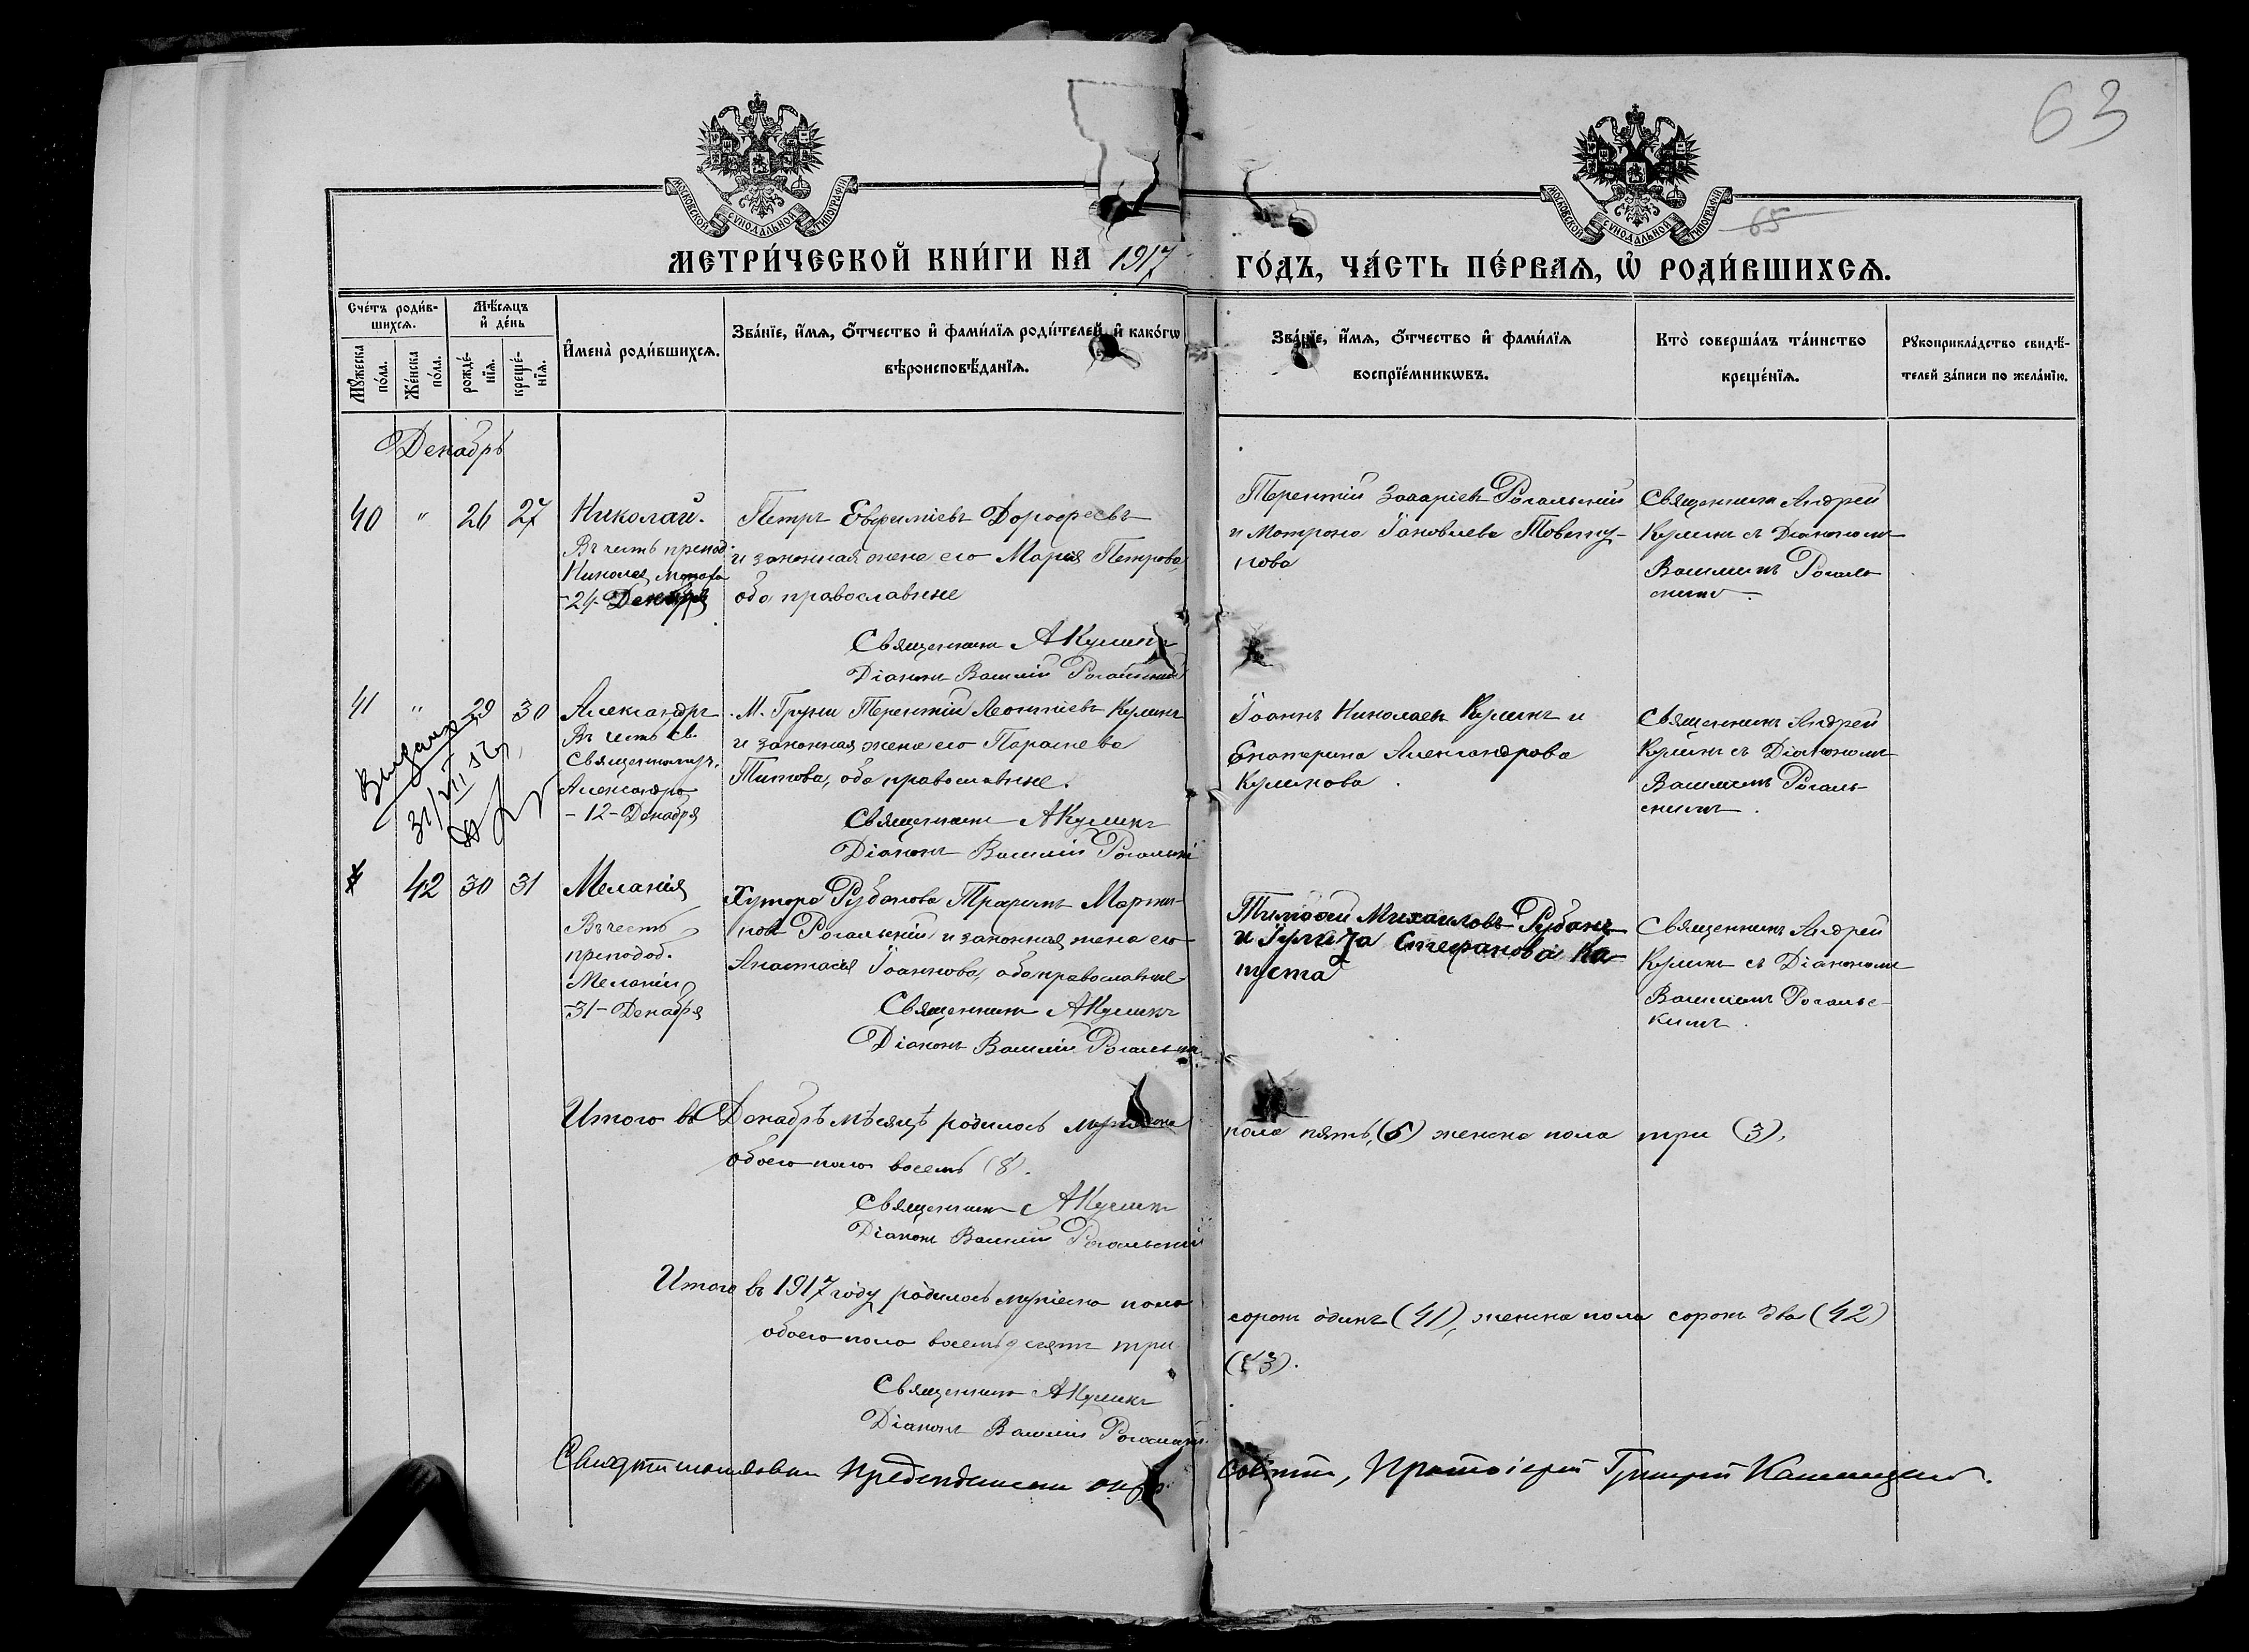 63
МОСКОВСКОЙ СѴНОДАЛЬНОЙ ТИПОГРАФІИ
МОСКОВСКОЙ СѴНОДАЛЬНОЙ ТИПОГРАФІИ
65
МЕТРИ́ЧЕСКОЙ КНИ́ГИ НА 1917 ГО́ДЪ, ЧА́СТЬ ПЕ́РВАѦ, Ѡ҆ РОДИ́ВШИХСѦ.
Сче́тъ роди́в-
шихсѧ.
Мꙋ́жеска
по́ла.
Же́нска
по́ла.
Мѣ́сѧцъ
и҆ де́нь
рожде́-
нїѧ.
креще́-
нїѧ.
И҆мена̀ роди́вшихсѧ.
Зва́нїе, и҆́мѧ, ѻ҆́тчество и҆ фами́лїѧ роди́телей, и҆ како́гѡ
вѣроисповѣ́данїѧ.
Зва́нїе, и҆́мѧ, ѻ҆́тчество и҆ фами́лїѧ
воспрїе́мникѡвъ.
Кто̀ соверша́лъ та́инство
креще́нїѧ.
Рꙋкоприкла́дство свидѣ́-
телей за́писи по жела́нїю.
Декабрь
40 " 26 27
Николай.
Въ честь препод.
Николая Монаха
-24- Декабря
Петръ Евфиміевъ Дорофеевъ
и законная жена его Марія Петрова,
оба православные
Священникъ А Куликъ
Діаконъ Василій Рогальскій
Терентій Захаріевъ Рогальскій
и Матрона Іаковлева
Священникъ Андрей
Куликъ съ Діакономъ
Василіемъ Рогаль-
скимъ.
41 " 29 30
Выдано
31/VII 52 г.
Александръ
Въ честь св.
Священномуч.
Александра
- 12 - Декабря
Терентій Леонтіевъ Куликъ
и законная жена его Параскева
Титова, оба православные.
Священникъ А Куликъ
Діаконъ Василій Рогальскій
Іоаннъ Николаевъ Куликъ и
Екатерина Александрова
Куликова.
Священникъ Андрей
Куликъ съ Діакономъ
Василіемъ Рогаль-
скимъ.
42 30 31
Меланія
Въ честь
преподоб.
Меланіи
-31- Декабря
Хутора Рубанова Трофимъ Марти-
новъ Рогальскій и законная жена его
Анастасія Іоаннова, оба православные
Священникъ А Куликъ
Діаконъ Василій Рогальскій
Тимофей Михаиловъ Рубанъ
и Гликерія Стефанова Ка-
пуста
Священникъ Андрей
Куликъ съ Діакономъ
Василіемъ Рогальс-
кимъ.
Итого въ Декабрѣ мѣсяцѣ родилось мужеска пола пять (5) женска пола три (3),
обоего пола восемь (8).
Священникъ А Куликъ
Діаконъ Василій Рогальскій
Итого въ 1917 году родилось мужеска пола сорокъ одинъ (41), женска пола сорокъ два (42)
обоего пола восемьдесятъ три (83).
Священникъ А Куликъ
Діаконъ Василій Рогальскій
Протоіерей Григорій